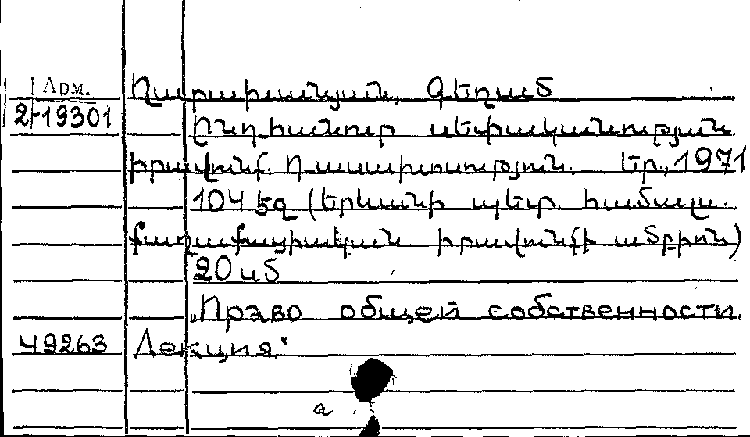 Арм.
Ղարախանյան, Գեղամ
2-19301
Ընդհանուր սեփականության
իրավունք. Դասախոսություն. Եր., 1971
104 էջ (Երևանի պետ. համալս.
քաղաքացիական իրավունքի ամբիոն)
20 սմ
„Право общей собственности.
49263 Лекция"
a